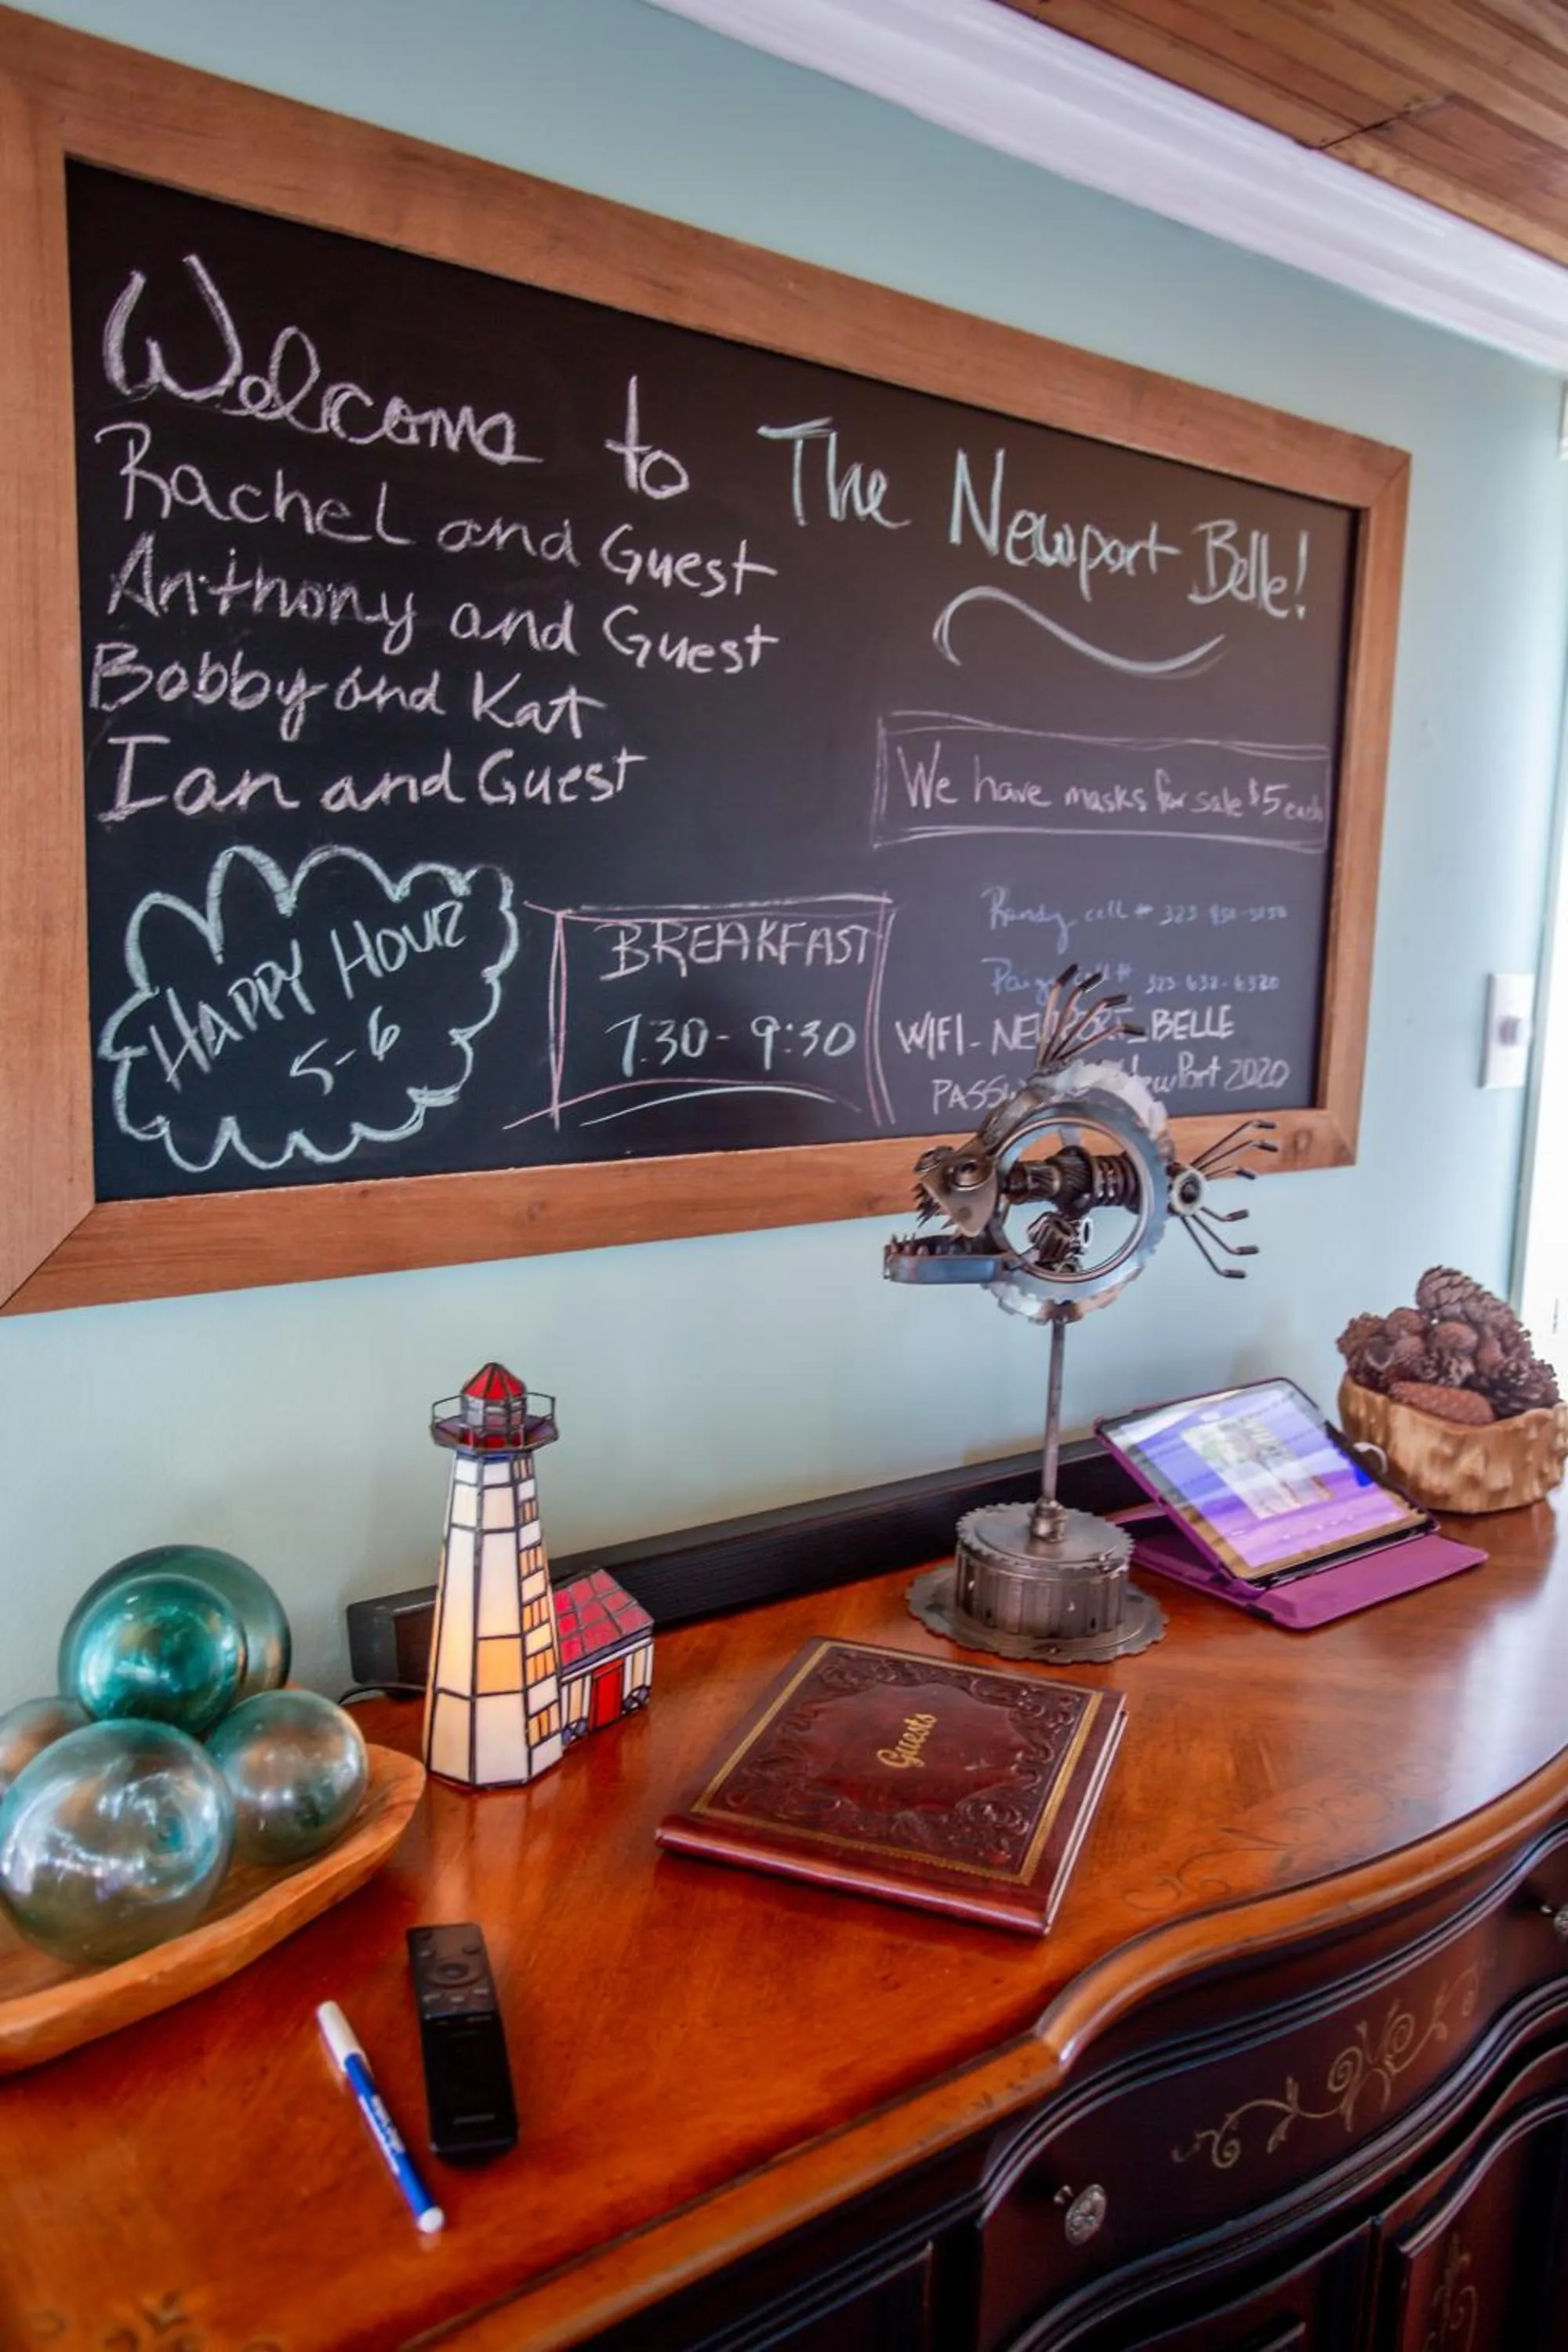 Welcome to The Newport Belle!
Rachel and Guest
Anthony and Guest
Bobby and Kat
Ian and Guest
We have masks for sale $5 each
HAPPY HOUR
5-6
BREAKFAST
7:30-9:30
Randy cell #
cell # 323-632-6320
WIFI- NEWPORT_BELLE
NewPort 2020
Guests